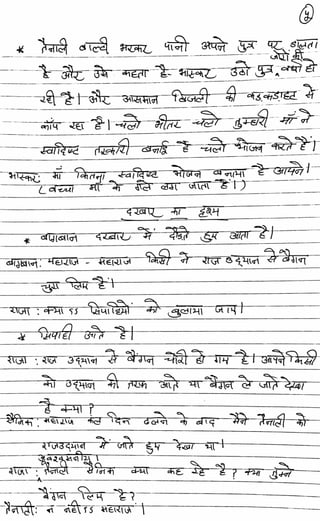 ४
* तैनाली बाल्टी भरकर पानी अपने पुत्र पर डालता
है और उसे कहता है- भास्कर उठो पुत्र, वर्षा हो
जोरों की
रही है। और आसमान बिजली की कड़कड़ाहट से
काँप रहा है। चलो भीतर चलो तुम्हारी माँ ने
स्वादिष्ट तरकारी बनाई है चलो भोजन करते हैं।
भास्कर: माँ कितना स्वादिष्ट भोजन बनाया है आपने।
(बच्चा माँ के गले लग जाता है।)
दरबार का दृश्य
* बागबान दरबार में दौड़ते हुए आता है।
बागबान: महाराज - महाराज किसी ने राज उद्यान से बैंगन
चुरा लिए हैं।
राजा: क्या ऽऽ सिपाहियों को बुलाया जाए।
* सिपाही आते है।
राजा: राज उद्यान से बैंगन चोरी हो गए है। आपने किसी
को उद्यान की तरफ आते या बैंगन ले जाते देखा
है क्या?
सैनिक: महाराज कल दिन ढलने के बाद मैंने तैनाली को
राजउद्यान में जाते हुए देखा था।
राजा: तैनाली सैनिक क्या कह रहे है? क्या तुमने
बैंगन लिए है?
तैनाली: न नहीं ऽऽ महाराज।